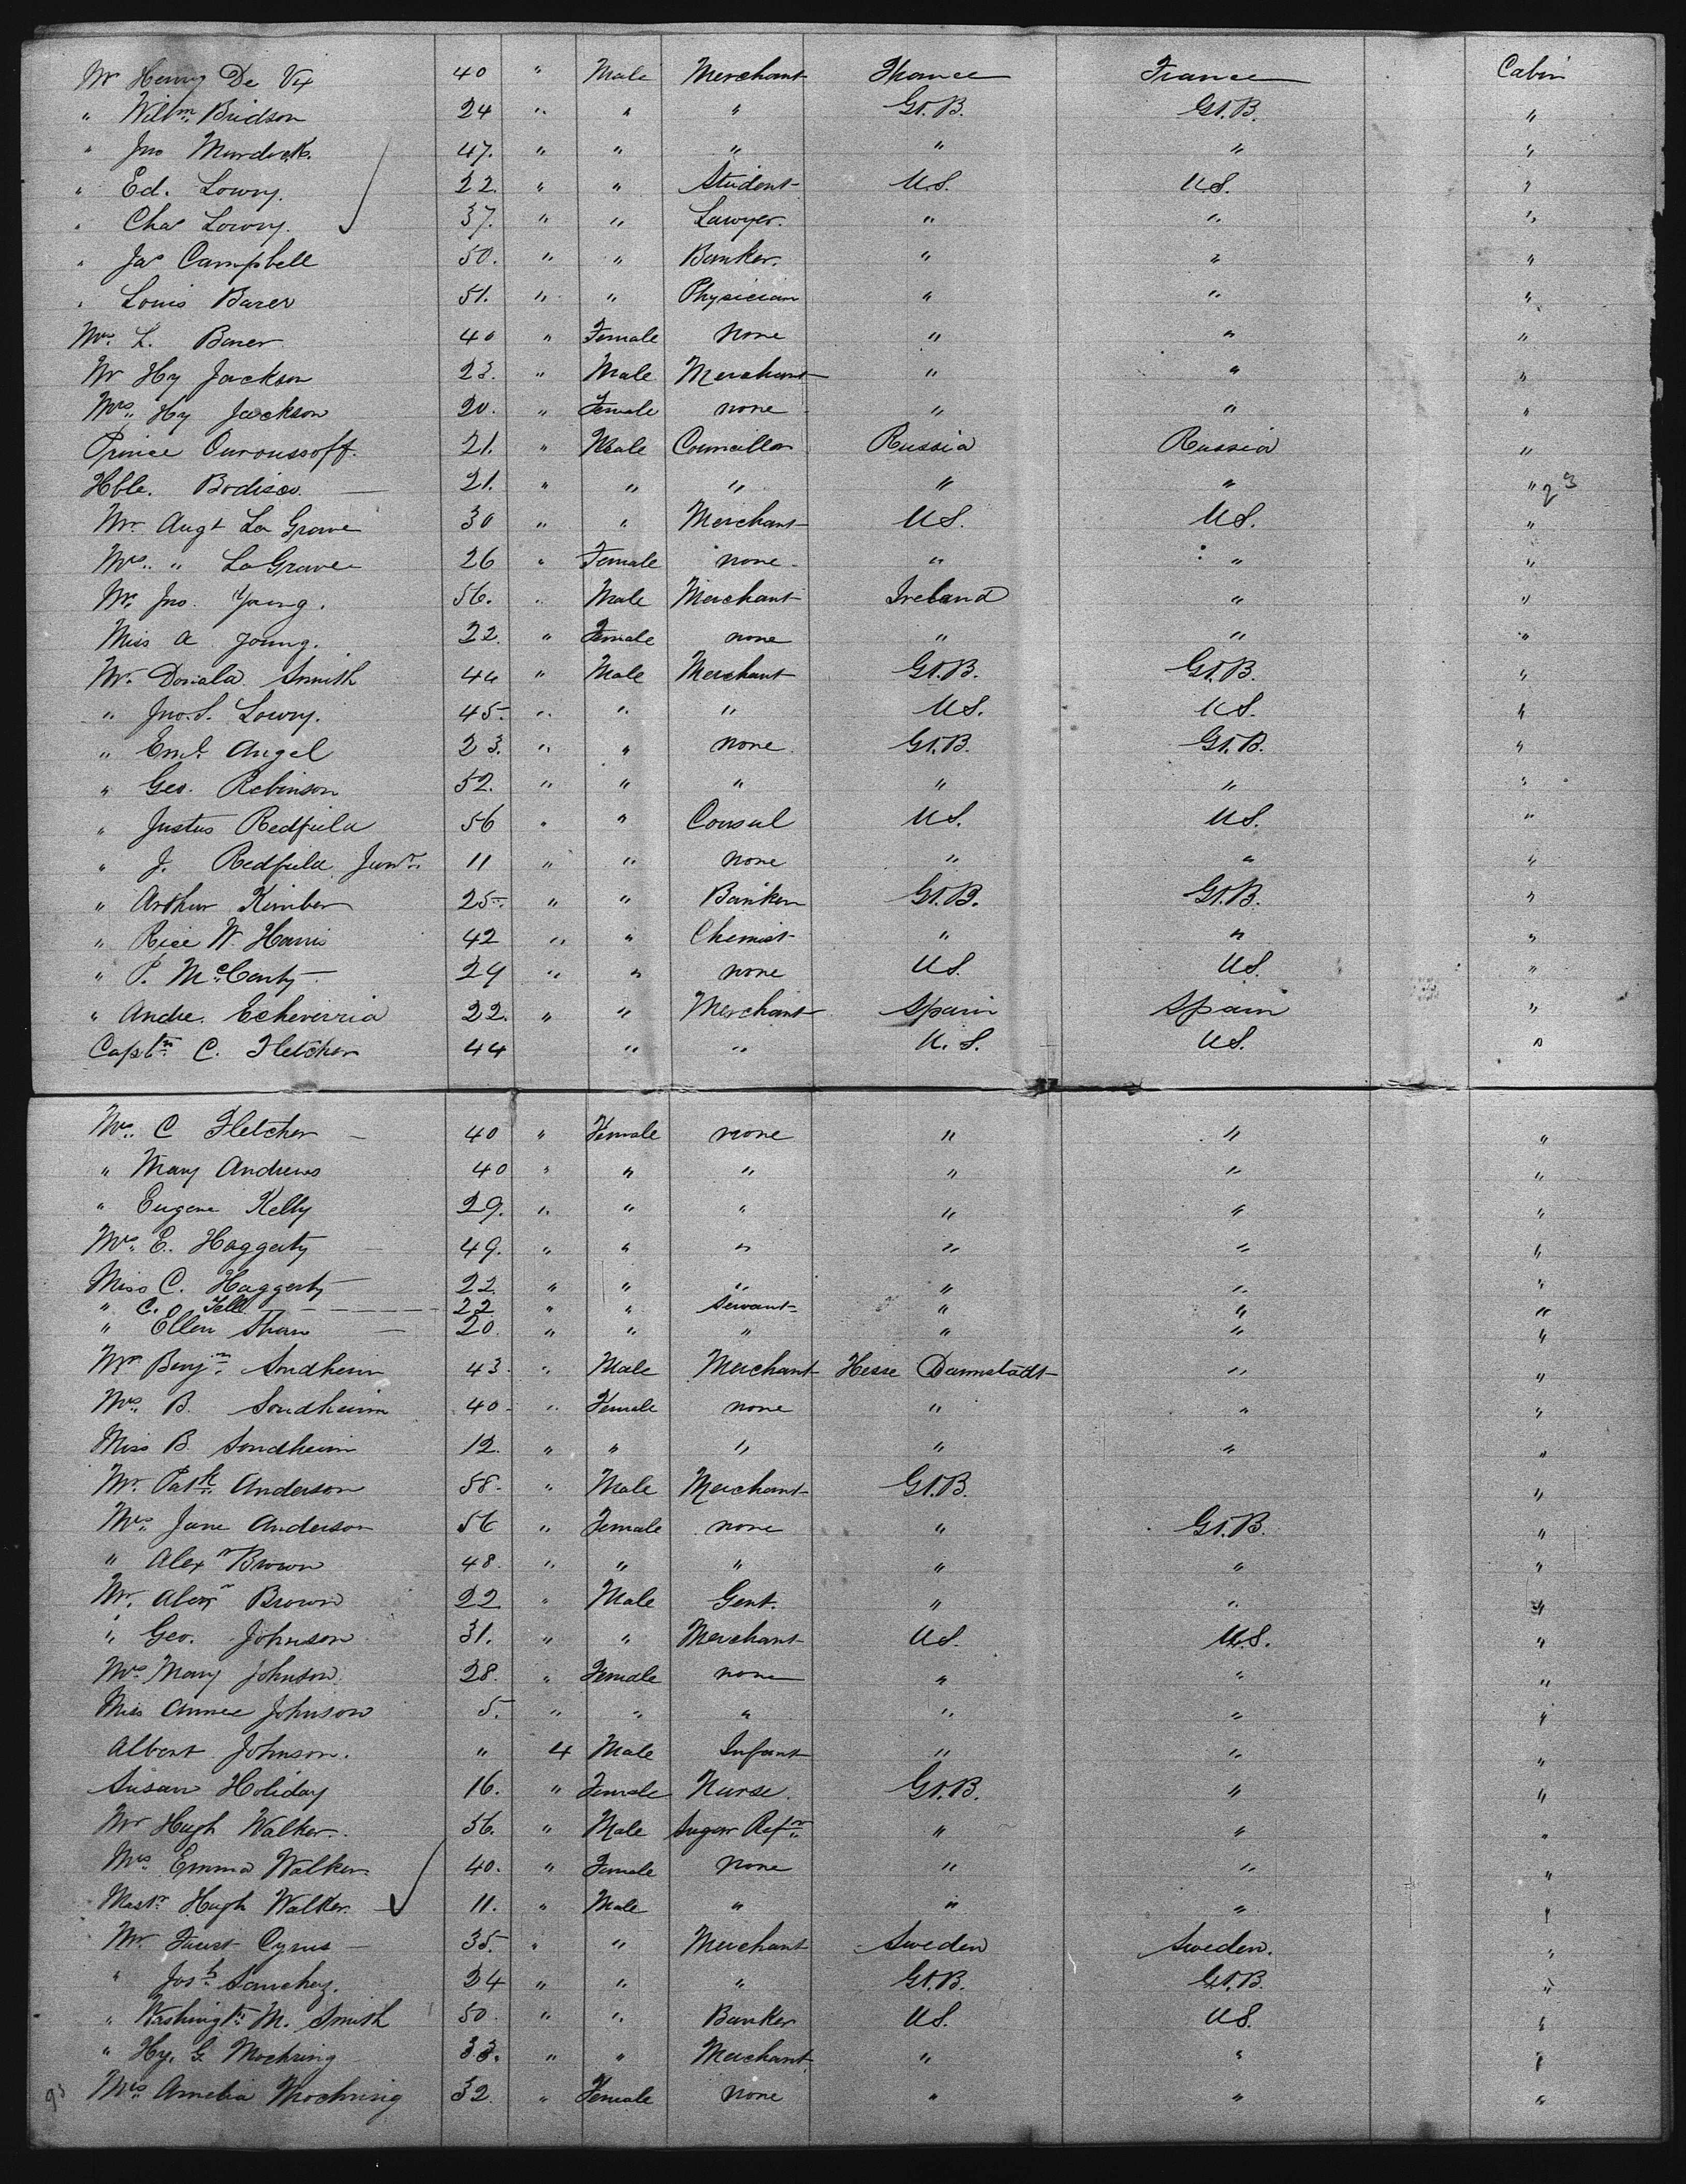 Mr Henry De Vy 40 " Male Merchant France France Cabin
" Willm Bridson 24 " " " Gt. B. Gt. B. "
" Jno Murdock. 47. " " " " " "
" Ed. Lowry. 22. " " Student U.S. U.S. "
" Chas Lowry. 37. " " Lawyer. " " "
" Jas Campbell 50. " " Banker. " " "
" Louis Barer 51. " " Physician " " "
Mrs. L. Barer 40 " Female none " " "
Mr Hy Jackson 23. " Male Merchant " " "
Mrs. Hy Jackson 20. " Female none " " "
Prince Ouroussoff. 21. " Male Councillor Russia Russia "
Hble. Bodisco. 21. " " " " " " 23
Mr Augt La Grave 30 " " Merchant U.S. U.S. "
Mrs. " La Grave 26 " Female none " " "
Mr. Jno. Young. 56. " Male Merchant Ireland " "
Miss A Young. 22. " Female none " " "
Mr. Donald Smith 44 " Male Merchant Gt. B. Gt. B. "
" Jno. S. Lowry. 45. " " " U.S. U.S. "
" Eml. Angel 23. " " none Gt. B. Gt. B. "
" Geo. Robinson 52. " " " " " "
" Justus Redfield 56 " " Consul U.S. U.S. "
" J. Redfield Junr. 11 " " none " " "
" Arthur Kimber 25. " " Banker Gt. B. Gt. B. "
" Rice W. Harris 42 " " Chemist " " "
" P. McCarty 29 " " none U.S. U.S. "
" Andre. Echeverria 22. " " Merchant Spain Spain "
Captn. C. Fletcher 44 " " U.S. U.S. "
Mrs. C Fletcher 40 " Female none " " "
" Mary Andrews 40 " " " " " "
" Eugene Kelly 29. " " " " " "
Mrs. E. Haggerty 49. " " " " " "
Miss C. Haggerty 22. " " " " " "
" C. Tell 22 " " Servant " " "
" Ellen Shaw 20. " " " " " "
Mr Benjn. Sondheim 43. " Male Merchant Hesse Darmstadt " "
Mrs. B. Sondheim 40 " Female none " " "
Miss B. Sondheim 12. " " " " " "
Mr. Patk. Anderson 58. " Male Merchant Gt. B. "
Mrs. Jane Anderson 56 " Female none " Gt. B. "
" Alexr Brown 48. " " " " " "
Mr. Alexr Brown 22 " Male Gent. " " "
" Geo. Johnson 31. " " Merchant U.S. U.S. "
Mrs Mary Johnson. 28. " Female none " " "
Miss Annee Johnson 5. " " " " " "
Albert Johnson. " 4 Male Infant " " "
Susan Holiday 16. " Female Nurse. Gt. B. " "
Mr Hugh Walker. 56. " Male Sugar Refr. " " "
Mrs. Emma Walker 40. " Female none " " "
Mastr Hugh Walker. 11. " Male " " " "
Mr. Faust Cyrus 35. " " Merchant Sweden Sweden. "
" Josh. Sanchez. 34 " " " Gt. B. Gt. B. "
" Washingtn. M. Smith 50. " " Banker U.S. U.S. "
" Hy. G. Moehring 33. " " Merchant " " "
93 Mrs. Amelia Moehring 32. " Female none " " "